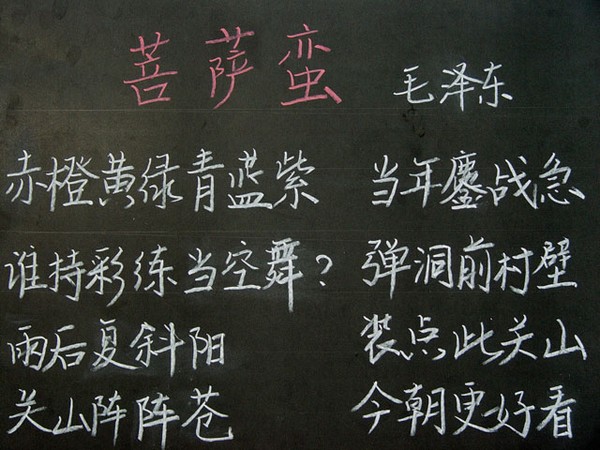 菩萨蛮
毛泽东
赤橙黄绿青蓝紫
谁持彩练当空舞?
雨后复斜阳
关山阵阵苍
当年鏖战急
弹洞前村壁
装点此关山
今朝更好看